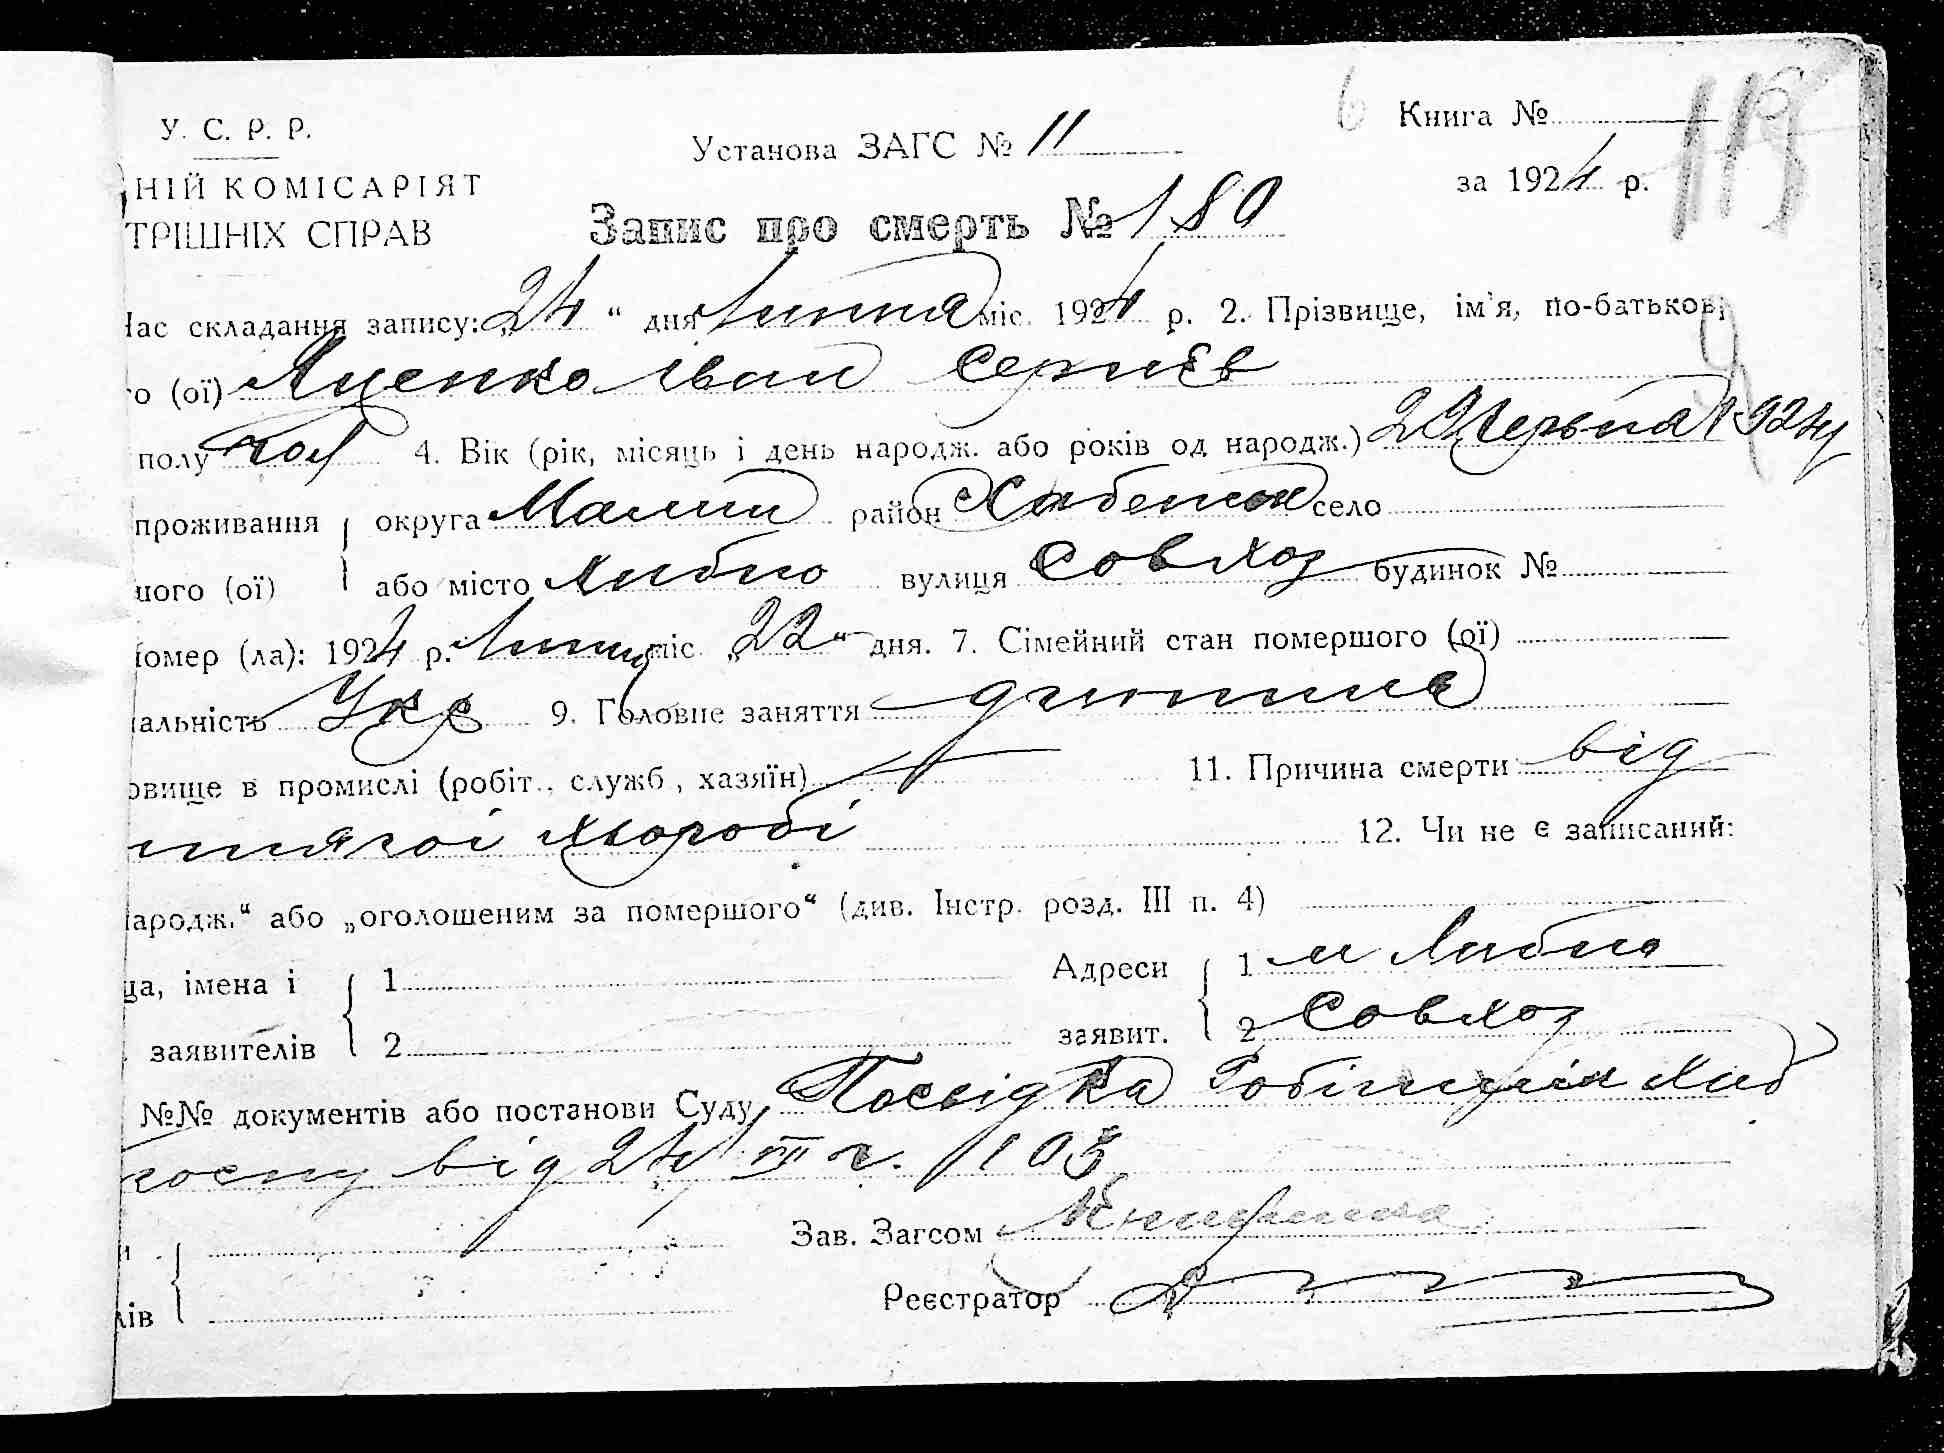 У. С. Р. Р.
Установа ЗАГС № 11
Книга №
за 1924 р.
НІЙ КОМІСАРІЯТ
ТРІШНІХ СПРАВ
Запис про смерть № 180
Час складання запису: „24“ дня липня міс. 1924 р. 2. Прізвище, ім'я, по-батькові
го (ої) Яценко Іван Сергієв
полу чол 4. Вік (рік, місяць і день народж. або років од народж.) червня 1924
проживання округа Малин район село
шого (ої) або місто вулиця Совхоз будинок №
помер (ла): 1924 р. липня міс. „22“ дня. 7. Сімейний стан помершого (ої)
нальність Укр 9. Головне заняття дитина
овище в промислі (робіт., служб., хазяїн) 11. Причина смерти від
хвороби 12. Чи не є записаний:
народж.“ або „оголошеним за помершого“ (див. Інстр. розд. III п. 4)
ща, імена і 1 Адреси 1 м
заявителів 2 заявит. 2 Совхоз
№№ документів або постанови Суду Посвідка
госпу від 24 VII ч. 103
Зав. Загсом
лів Реєстратор